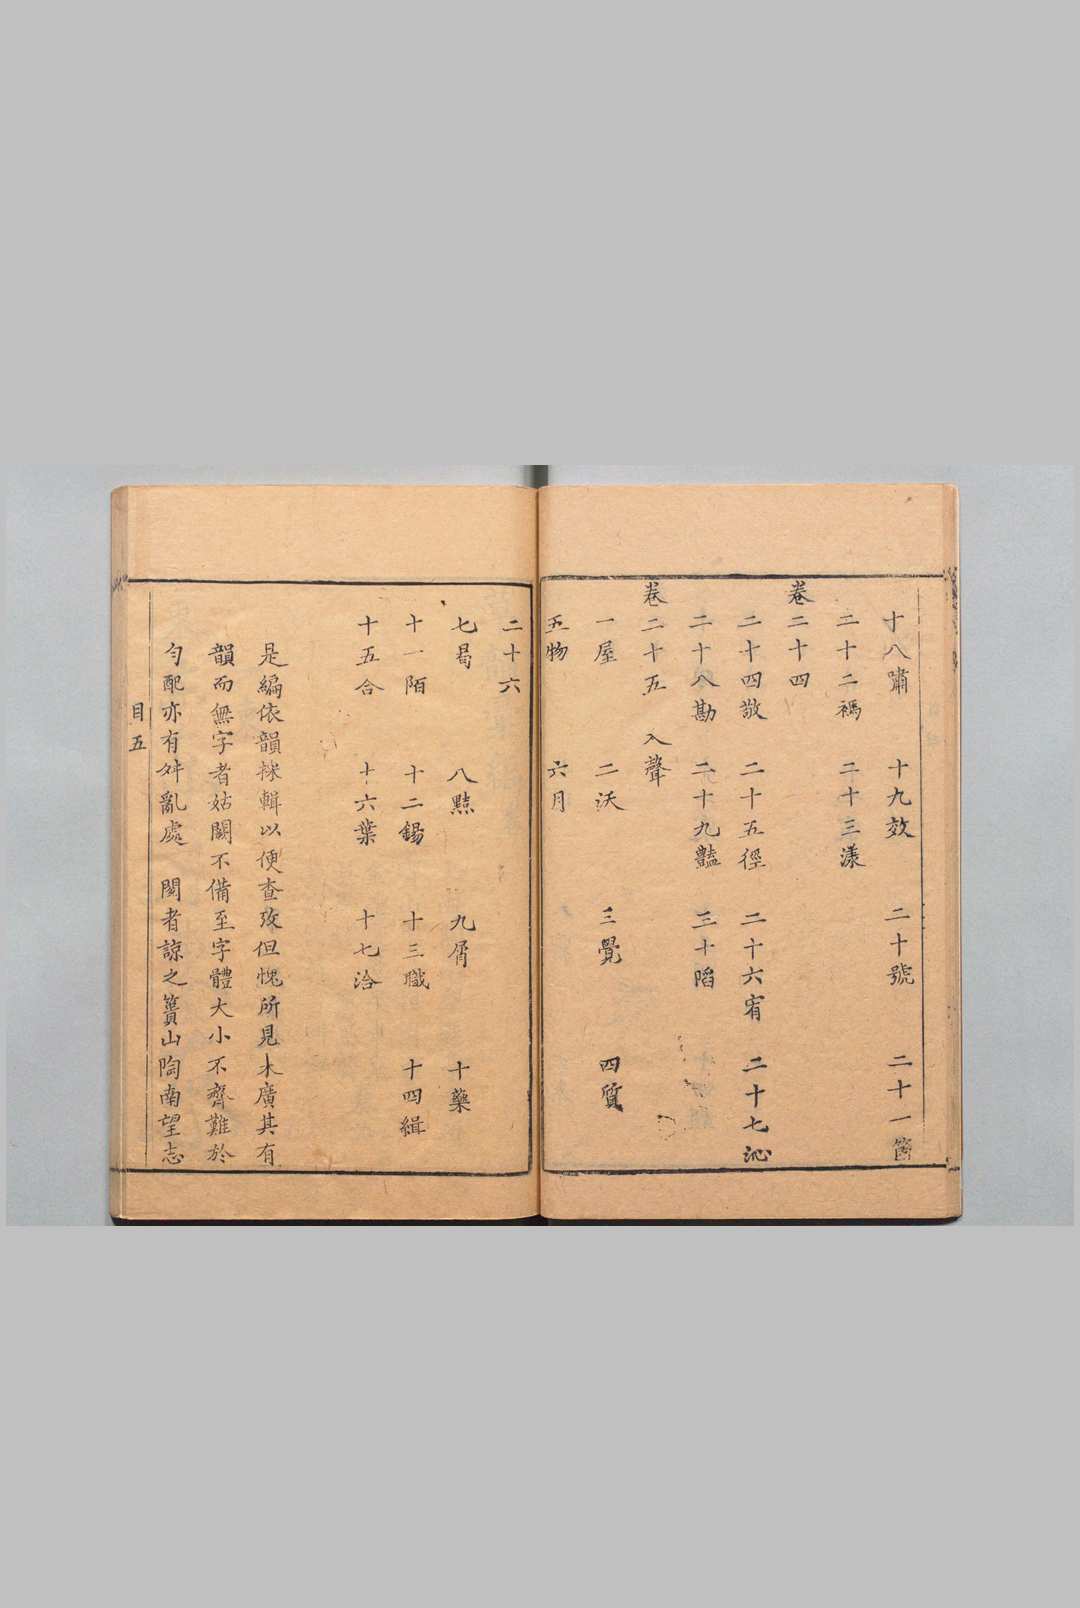 十八嘯 十九效 二十號 二十一箇
二十二禡 二十三漾
卷二十四
二十四敬 二十五徑 二十六宥 二十七沁
二十八勘 二十九豔 三十陷
卷二十五 入聲
一屋 二沃 三覺 四質
五物 六月
二十六
七曷 八黠 九屑 十藥
十一陌 十二錫 十三職 十四緝
十五合 十六葉 十七洽
是編依韻採輯以便查攷但愧所見未廣其有
韻而無字者姑闕不備至字體大小不齊難於
勻配亦有舛亂處 閱者諒之簣山陶南望志
目五